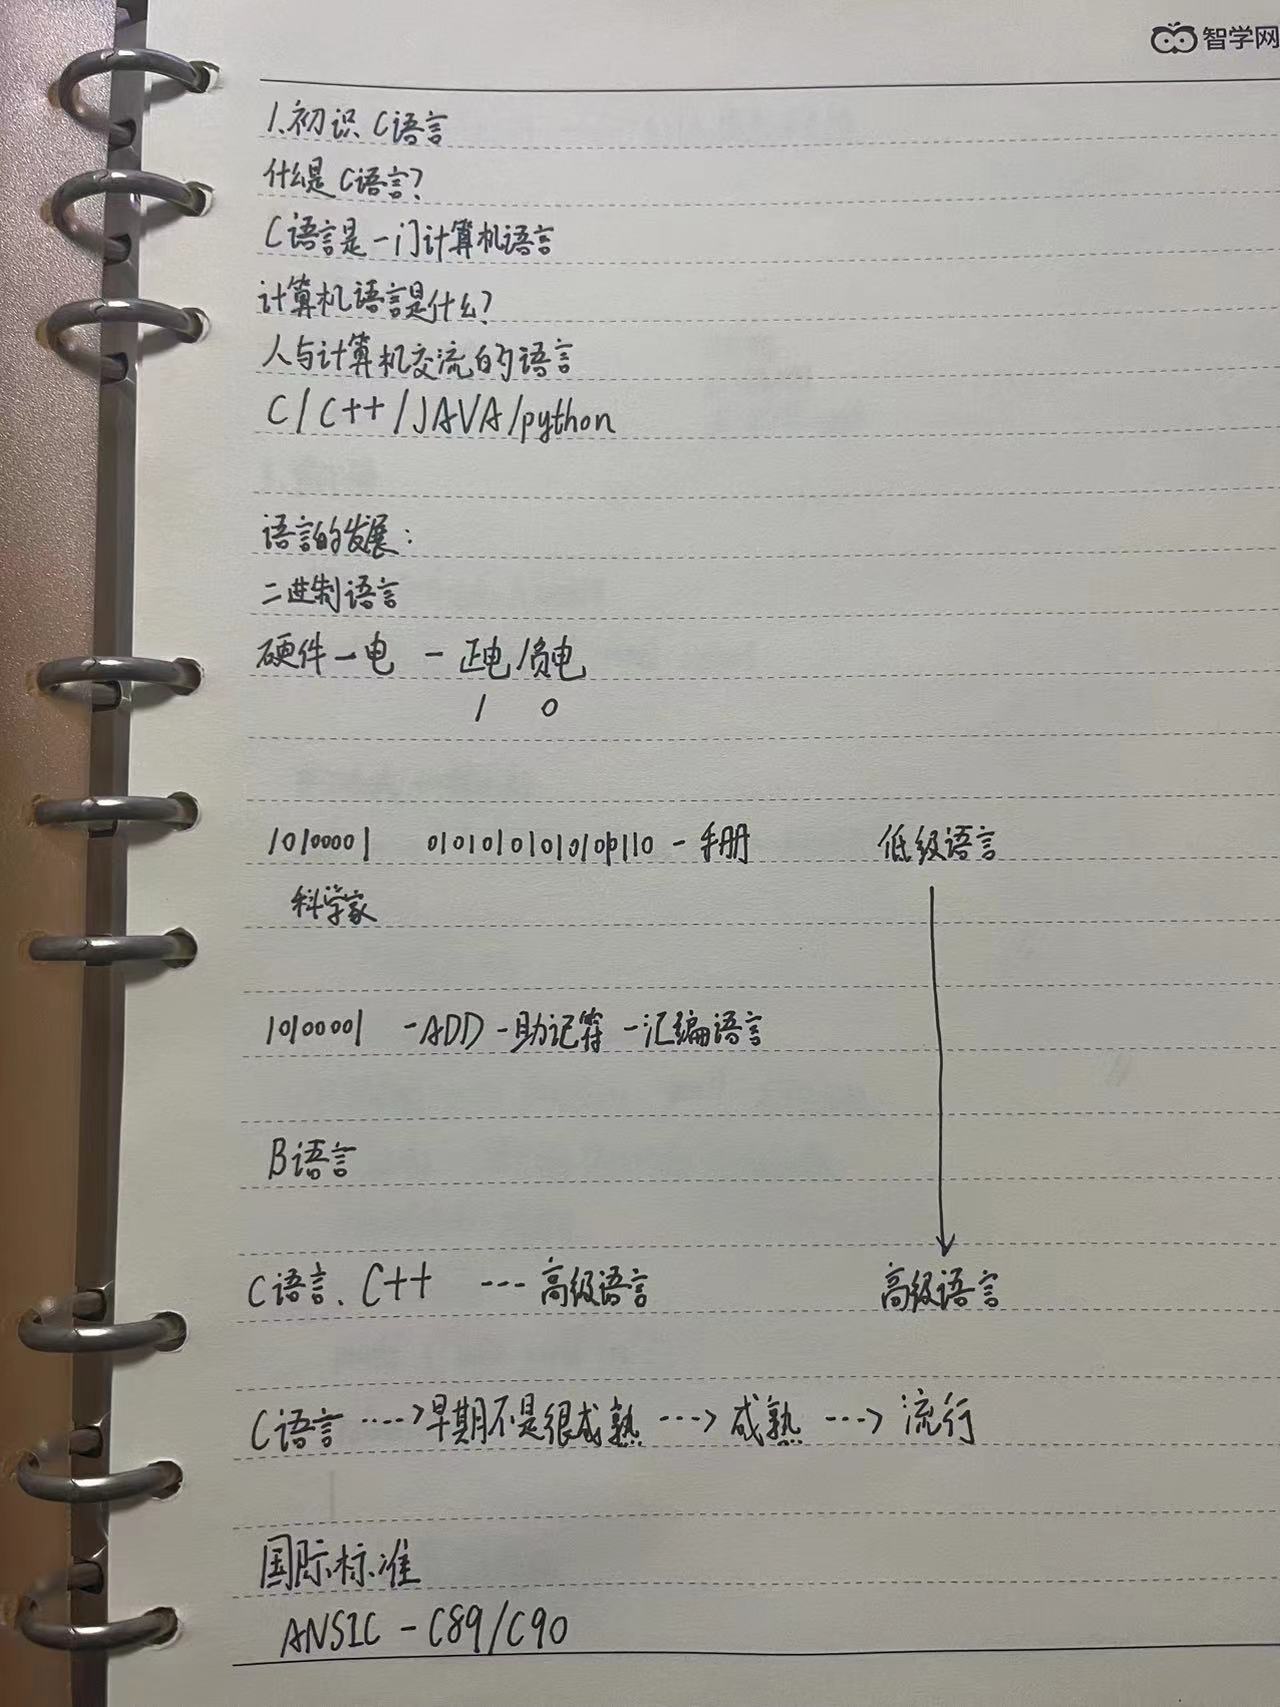 智学网
1.初识C语言
什么是C语言?
C语言是一门计算机语言
计算机语言是什么?
人与计算机交流的语言
C/C++/JAVA/python
语言的发展:
二进制语言
硬件-电 - 正电/负电
1 0
10100001 低级语言
手册
科学家
10100001 -ADD-助记符-汇编语言
B语言
C语言、C++ --- 高级语言 高级语言
C语言 ····→早期不是很成熟 ---→ 成熟 ---→ 流行
国际标准
ANSIC - C89/C90